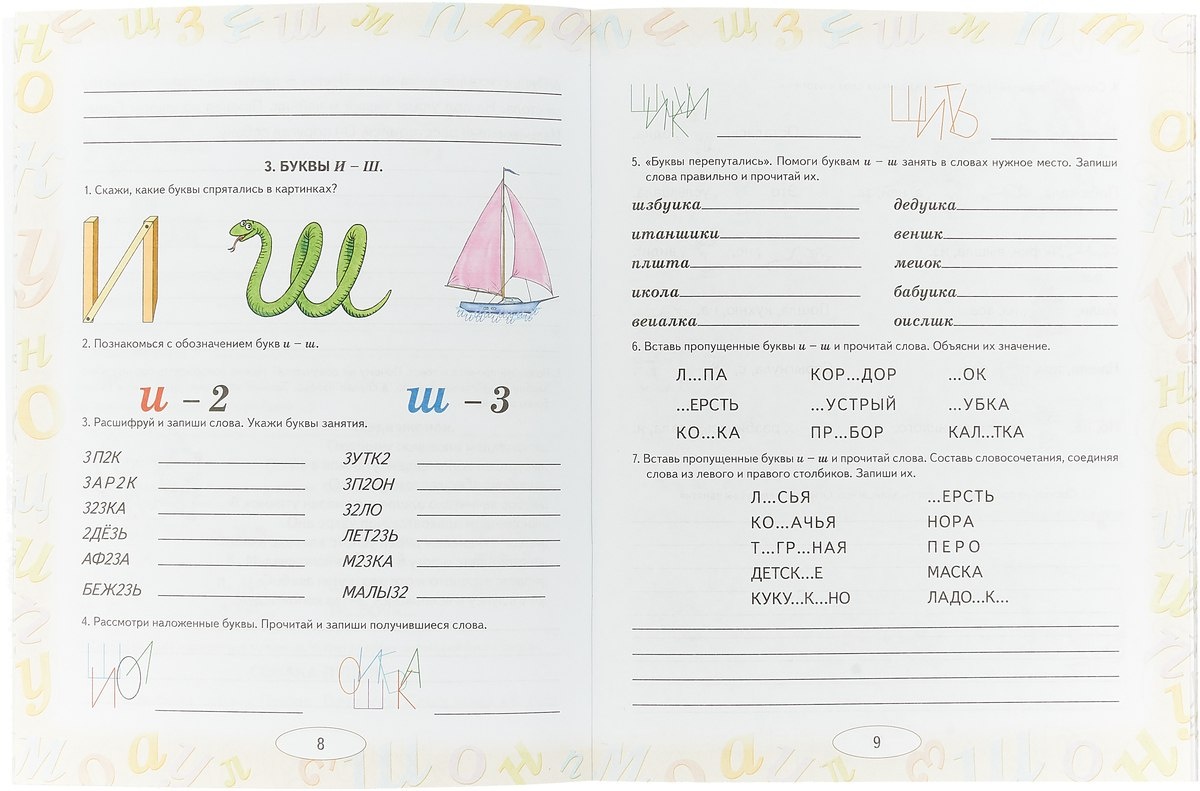 3. БУКВЫ И – Ш.
1. Скажи, какие буквы спрятались в картинках?
И Ш
2. Познакомься с обозначением букв и – ш.
и – 2 ш – 3
3. Расшифруй и запиши слова. Укажи буквы занятия.
3П2К 3УТК2
3АР2К 3П2ОН
323КА 32ЛО
2ДЁ3Ь ЛЕТ23Ь
АФ23А М23КА
БЕЖ23Ь МАЛЫ32
4. Рассмотри наложенные буквы. Прочитай и запиши получившиеся слова.
8
ШИТЬ
5. «Буквы перепутались». Помоги буквам и – ш занять в словах нужное место. Запиши
слова правильно и прочитай их.
шзбуика дедуика
итаншики веншк
плшта меиок
икола бабуика
веиалка оислшк
6. Вставь пропущенные буквы и – ш и прочитай слова. Объясни их значение.
Л...ПА КОР...ДОР ...ОК
...ЕРСТЬ ...УСТРЫЙ ...УБКА
КО...КА ПР...БОР КАЛ...ТКА
7. Вставь пропущенные буквы и – ш и прочитай слова. Составь словосочетания, соединяя
слова из левого и правого столбиков. Запиши их.
Л...СЬЯ ...ЕРСТЬ
КО...АЧЬЯ НОРА
Т...ГР...НАЯ ПЕРО
ДЕТСК...Е МАСКА
КУКУ...К...НО ЛАДО...К...
9